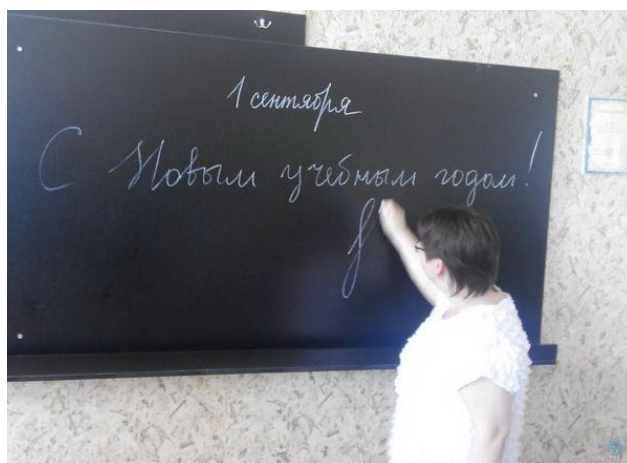 1 сентября
С Новым учебным годом!